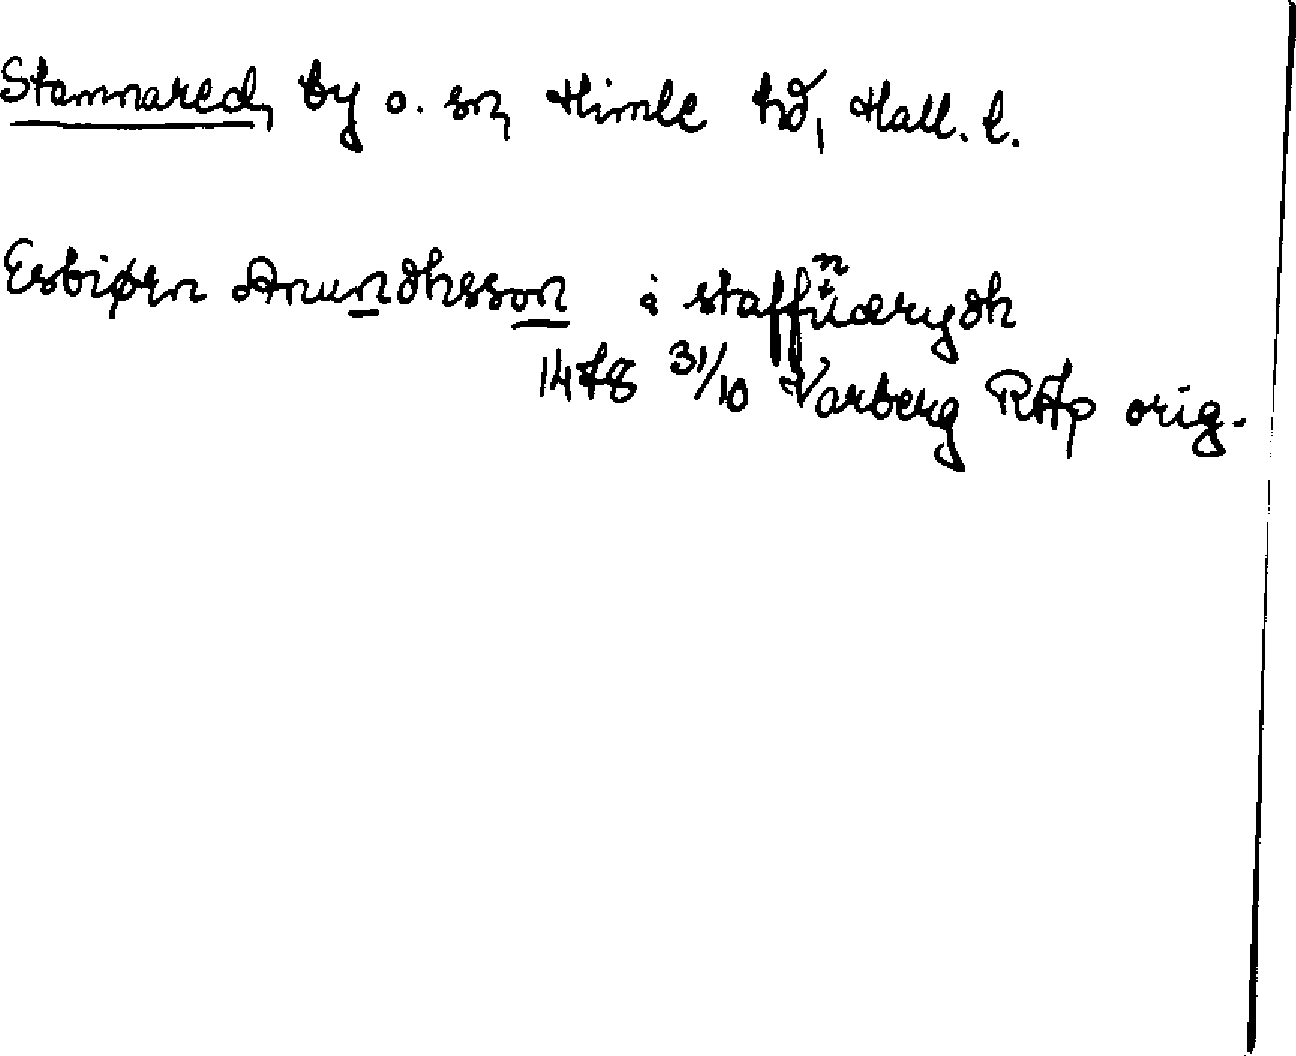 Stamnared, by o. sn, Himle hd, Hall. l.
Esbiørn Anundhsson i staffnærydh
1478 31/10 Varberg RAp orig.